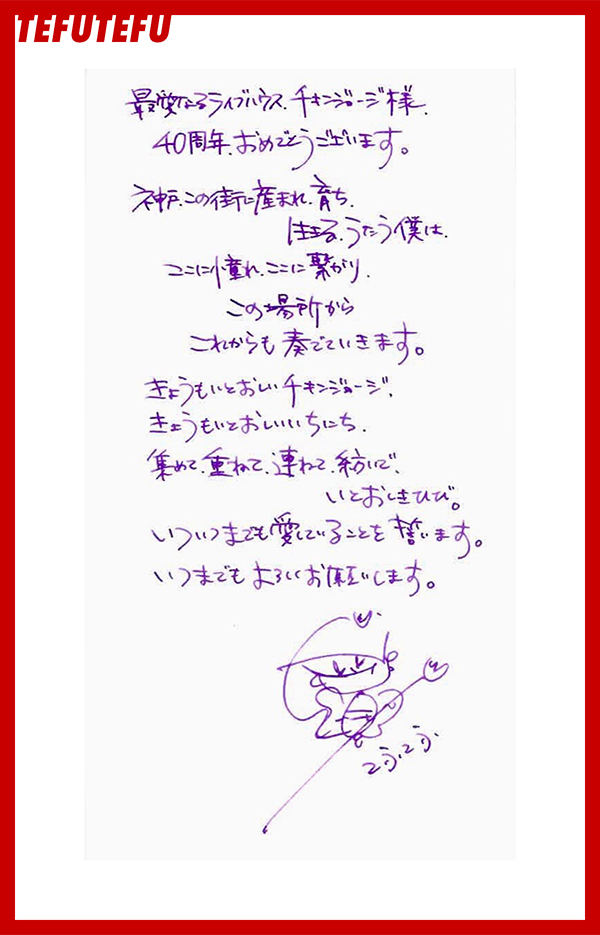 TEFUTEFU
最愛なるライブハウス、チキンジョージ様、
40周年、おめでとうございます。
神戸、この街に産まれ、育ち、
生きる、うたう僕は、
ここに憧れ、ここに繋がり、
この場所から
これからも奏でていきます。
きょうもいとおしいチキンジョージ、
きょうもいとおしいいちにち、
集めて、重ねて、連ねて、紡いで、
いとおしきひび。
いついつまでも愛していることを誓います。
いつまでもよろしくお願いします。
てふてふ